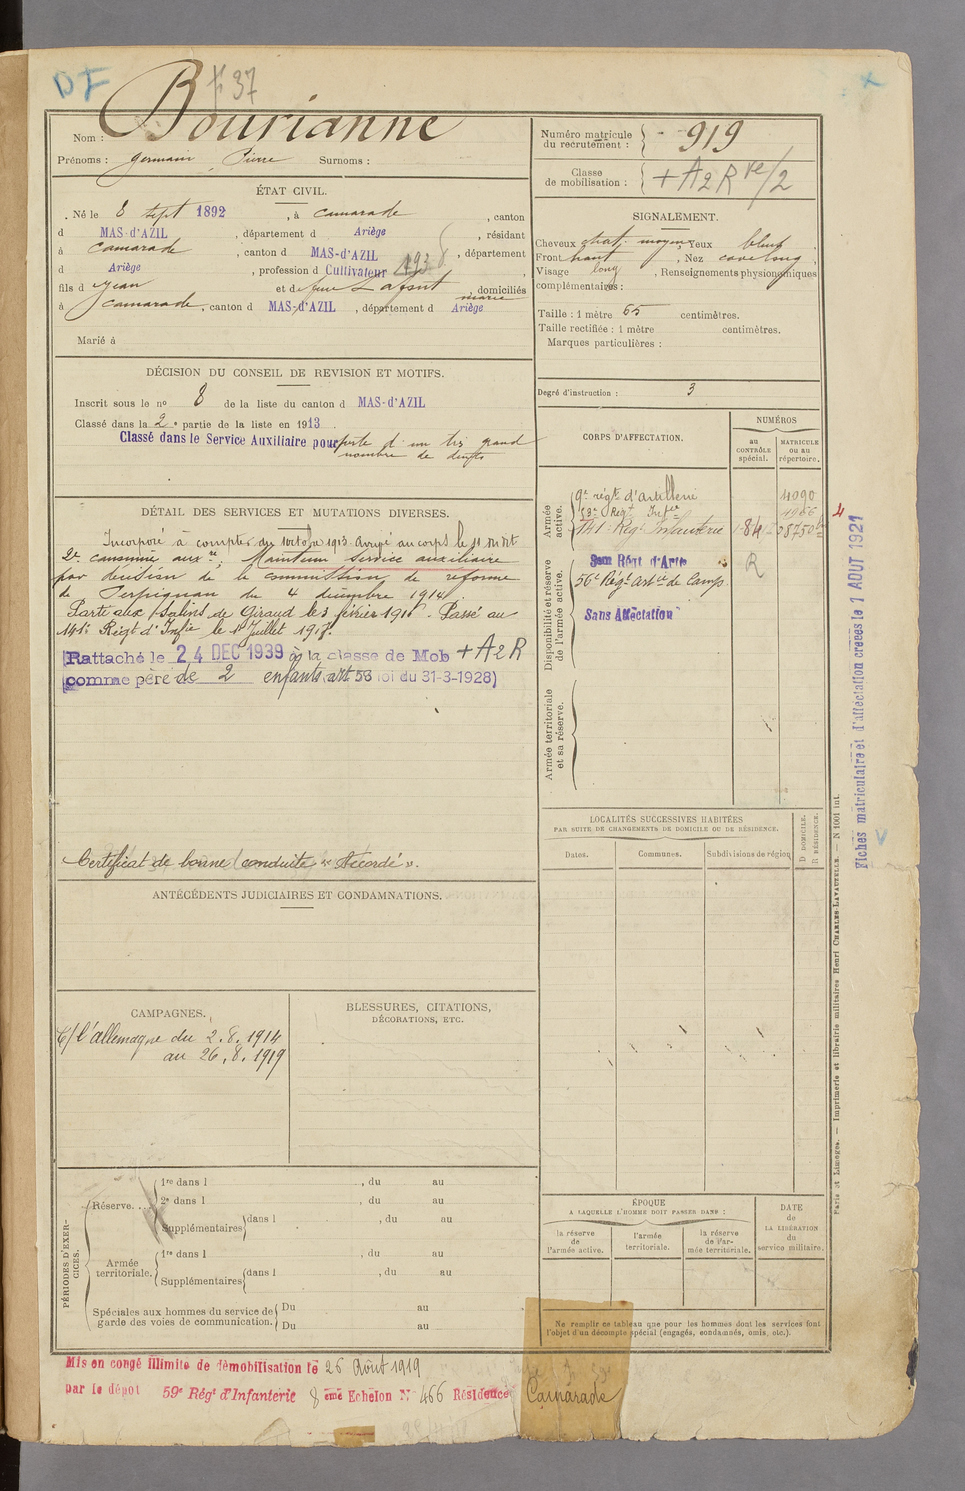 DF
f° 37
Nom : Bourianne
Prénoms : Germain Pierre Surnoms :
Numéro matricule du recrutement : 919
Classe de mobilisation : + A2R /2
ÉTAT CIVIL.
Né le 8 sept 1892, à Camarade, canton
d MAS-d'AZIL, département d Ariège, résidant
à Camarade, canton d MAS-d'AZIL, département
d Ariège, profession d Cultivateur
fils d Jean et de feue Lafont Marie, domiciliés
à Camarade, canton d MAS-d'AZIL, département d Ariège
Marié à
SIGNALEMENT.
Cheveux chat. moyen Yeux bleus
Front haut, Nez cave long,
Visage long, Renseignements physionomiques
complémentaires :
Taille : 1 mètre 65 centimètres.
Taille rectifiée : 1 mètre centimètres.
Marques particulières :
Degré d'instruction : 3
DÉCISION DU CONSEIL DE REVISION ET MOTIFS.
Inscrit sous le no 8 de la liste du canton d MAS-d'AZIL
Classé dans la 2e partie de la liste en 1913.
Classé dans le Service Auxiliaire pour perte d'un très grand
nombre de dents
DÉTAIL DES SERVICES ET MUTATIONS DIVERSES.
Incorporé à compter du 10 octobre 1913 Arrivé au corps le
2e canonnier auxre. Maintenu Service auxiliaire
par décision de la commission de réforme
de Perpignan du 4 décembre 1914.
Parti aux Salins de Giraud le 3 février 1916. Passé au
141e Régt d'Infie le 1r Juillet 1917.
Rattaché le 24 DEC 1939 à la classe de Mob + A2R
(comme père de 2 enfants art 58 loi du 31-3-1928)
Certificat de bonne conduite "Accordé".
CORPS D'AFFECTATION.
NUMÉROS
au CONTRÔLE spécial.
MATRICULE ou au répertoire.
Armée active.
9e régt d'artillerie 4090
Regt Infie
141e Regt Infanterie
Disponibilité et réserve de l'armée active.
9em Régt d'Artie R
56e Régt Artie de Camp.
Sans Affectation
Armée territoriale et sa réserve.
Fiches matriculaire et d'affectation créées le 1 AOUT 1921
LOCALITÉS SUCCESSIVES HABITÉES
PAR SUITE DE CHANGEMENTS DE DOMICILE OU DE RÉSIDENCE.
Dates. Communes. Subdivisions de région.
D DOMICILE.
R RÉSIDENCE.
ANTÉCÉDENTS JUDICIAIRES ET CONDAMNATIONS.
CAMPAGNES.
C/ l'allemagne du 2.8.1914
au 26.8.1919
BLESSURES, CITATIONS,
DÉCORATIONS, ETC.
PÉRIODES D'EXERCICES.
Réserve....
1re dans l , du au
2e dans l , du au
Supplémentaires dans l , du au
Armée territoriale.
1re dans l , du au
Supplémentaires dans l , du au
Spéciales aux hommes du service de
garde des voies de communication.
Du au
Du au
ÉPOQUE
A LAQUELLE L'HOMME DOIT PASSER DANS :
la réserve de l'armée active.
l'armée territoriale.
la réserve de l'armée territoriale.
DATE de LA LIBÉRATION du service militaire.
Ne remplir ce tableau que pour les hommes dont les services font
l'objet d'un décompte spécial (engagés, condamnés, omis, etc.).
Paris et Limoges. — Imprimerie et librairie militaires Henri CHARLES-LAVAUZELLE. — N 1001 int.
Mis en congé illimité de démobilisation le 26 Août 1919
par le dépôt 59e Régt d'Infanterie 8 ème Echelon No 466 Résidence Camarade